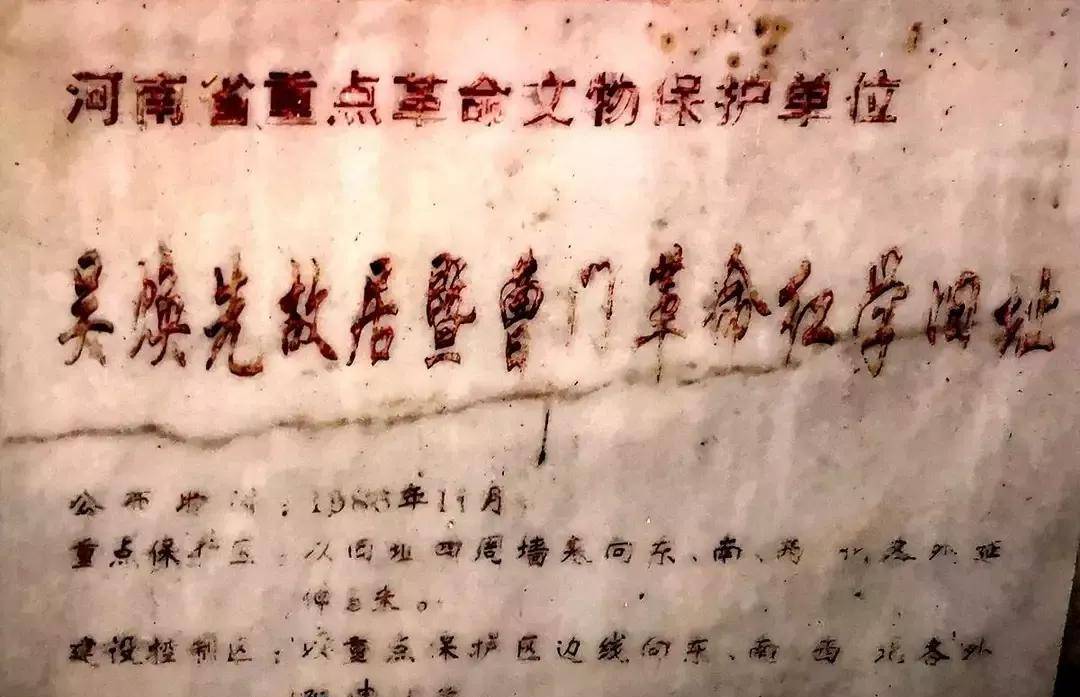 河南省重点革命文物保护单位
吴焕先故居暨曹门革命红学旧址
公布时间:1986年11月
重点保护区:以旧址四周墙基向东、南、西、北各外延
伸 米。
建设控制区:以重点保护区边线向东、南、西、北各外